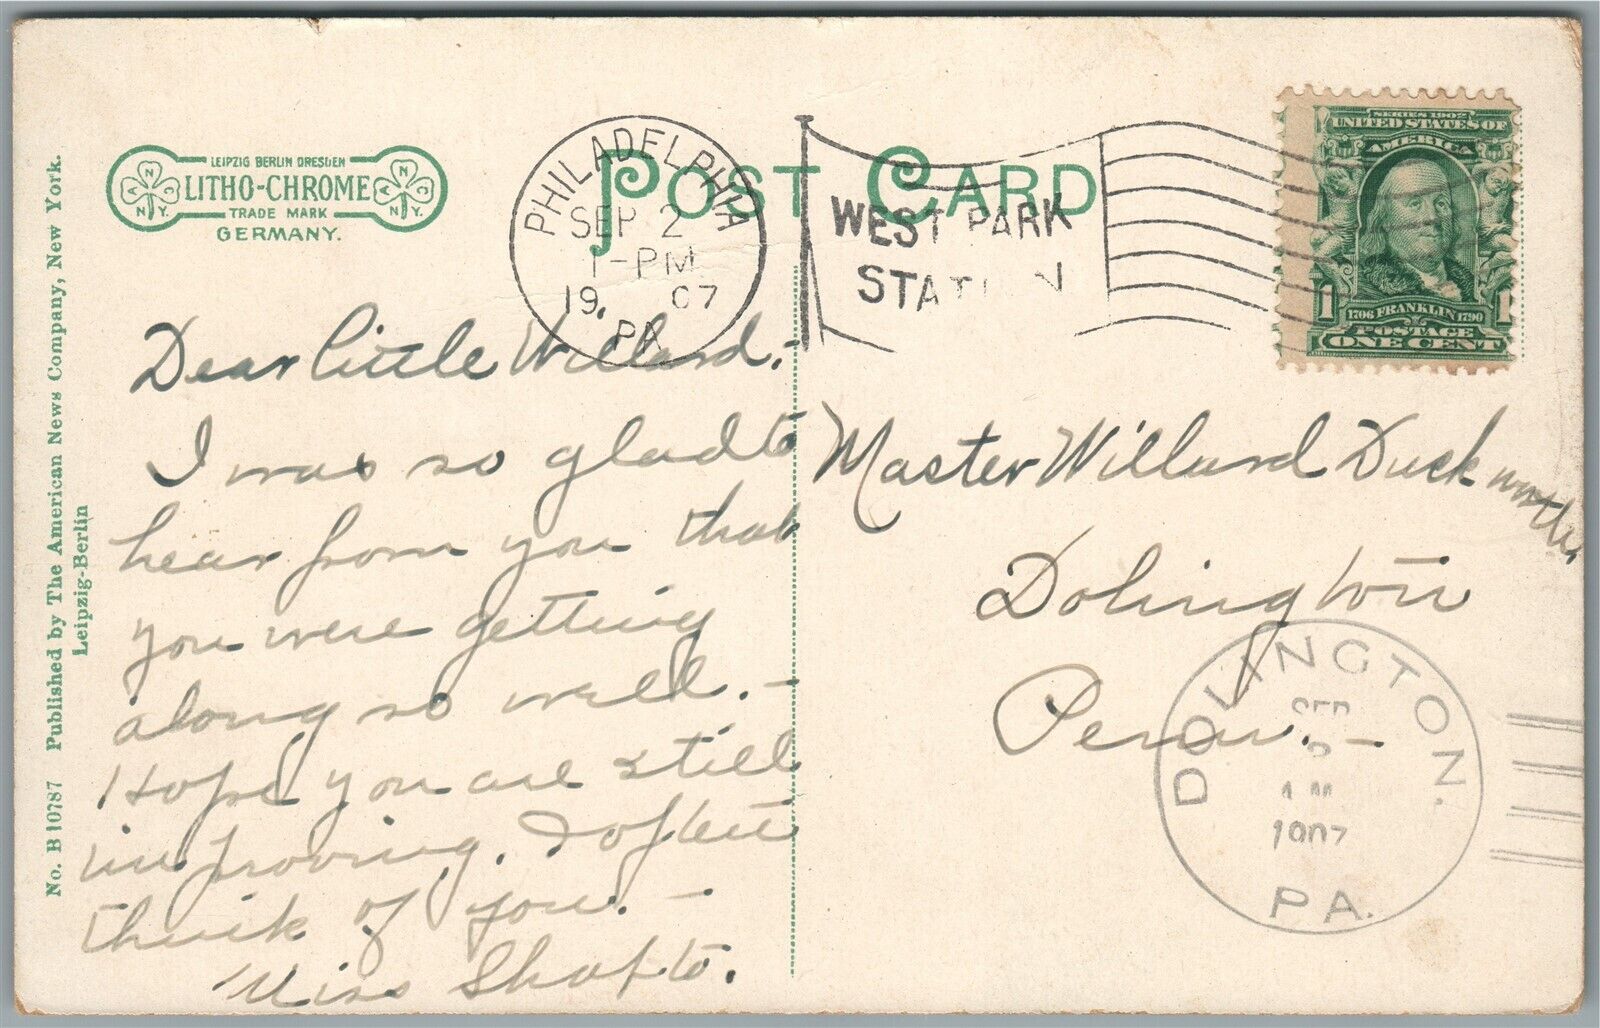 LEIPZIG BERLIN DRESDEN
LITHO-CHROME
TRADE MARK
GERMANY.
ANCO
N.Y.
ANCO
N.Y.
POST CARD
PHILADELPHIA
SEP 2
1-PM
19. 07
PA
WEST PARK
STATION
SERIES 1902
UNITED STATES OF
AMERICA
1 1
1706 FRANKLIN 1790
POSTAGE
ONE CENT
No. B 10787 Published by The American News Company, New York.
Leipzig-Berlin
Dear little Willard.-
I was so glad to
hear from you that
you were getting
along so well. -
Hope you are still
improving. I often
think of you. -
Miss Shafto.
Master Willard Duckworth,
Dolington
Penn. -
DOLINGTON.
SEP
AM
1907
PA.